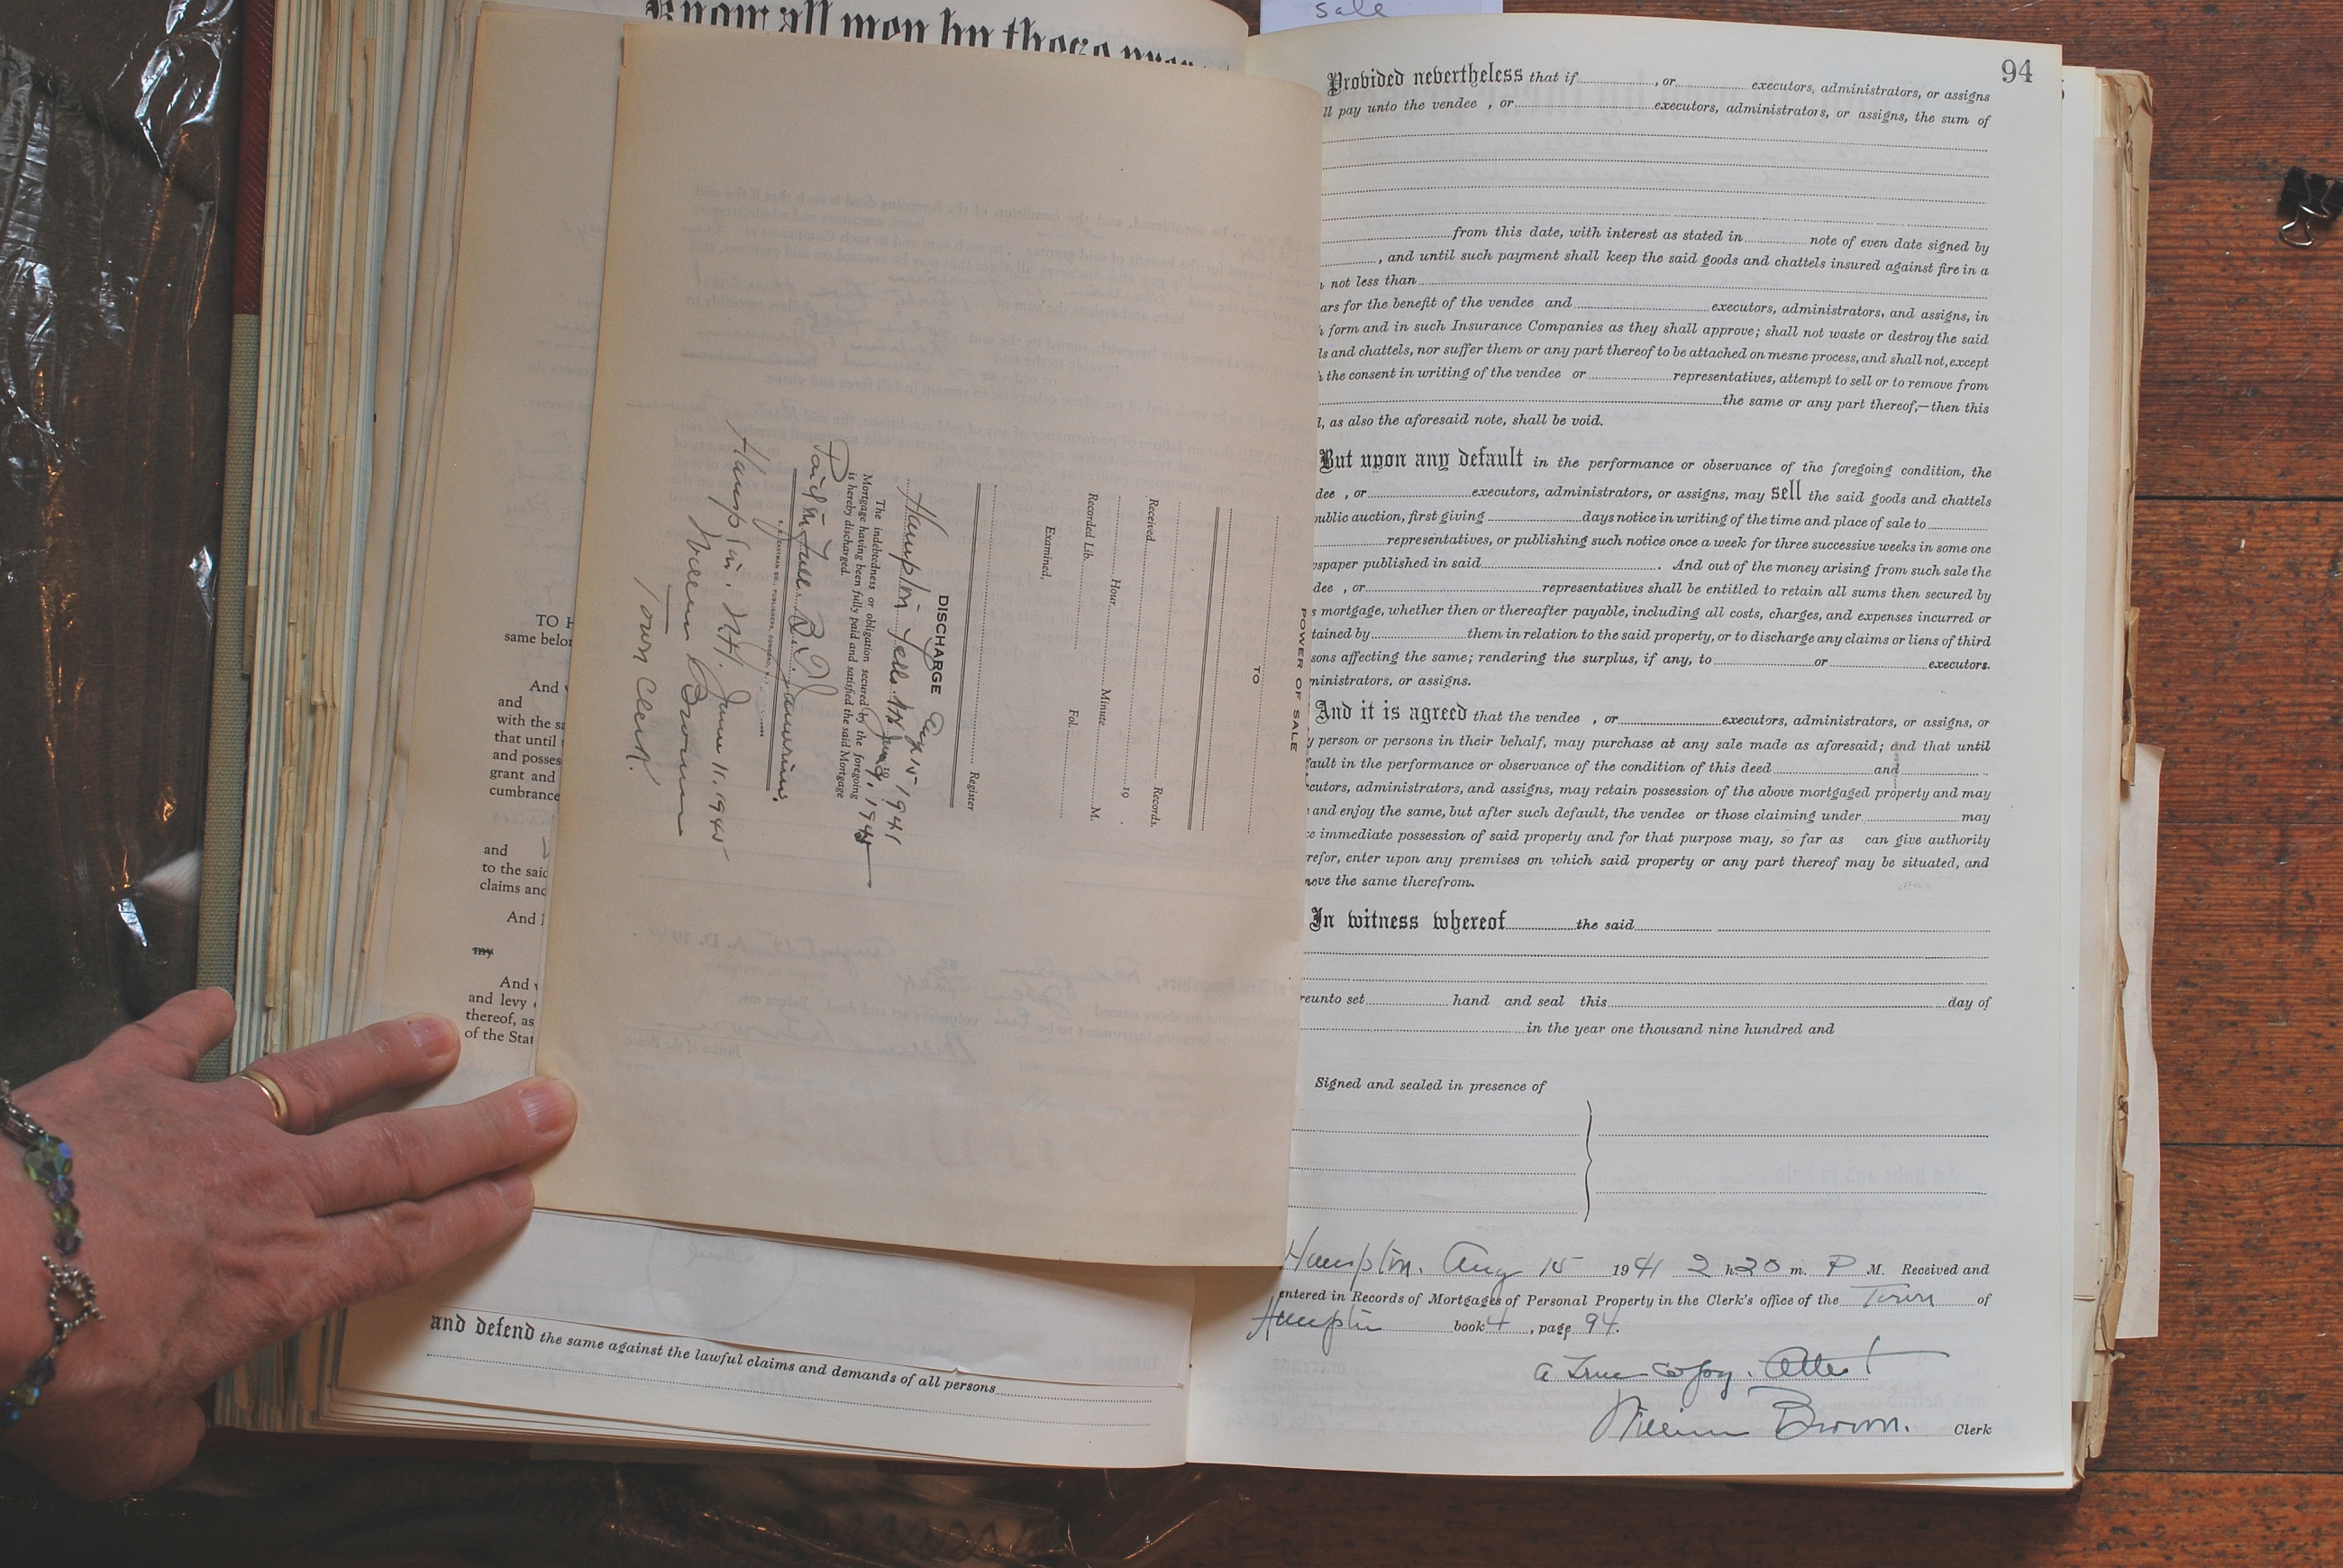 sale
Know all men by these
TO H
same belon
And w
and
with the sa
that until
and posses
grant and
cumbrance
and
to the said
claims and
And I
my
And w
and levy
thereof, as
of the Stat
and defend the same against the lawful claims and demands of all persons
POWER OF SALE
TO
Received Records.
Hour Minute 19
Recorded Lib. Fol. M.
Examined,
Register
DISCHARGE
Aug 15 1941
Hampton Falls NH June 9, 1945
19
The indebtedness or obligation secured by the foregoing
Mortgage having been fully paid and satisfied the said Mortgage
is hereby discharged.
Paid in full
EASTMAN CO., PUBLISHERS, CONCORD,
Hampton. N.H. June 11. 1945
William Brown
Town Clerk.
94
Provided nevertheless that if , or executors, administrators, or assigns
ll pay unto the vendee , or executors, administrators, or assigns, the sum of
from this date, with interest as stated in note of even date signed by
, and until such payment shall keep the said goods and chattels insured against fire in a
not less than
ars for the benefit of the vendee and executors, administrators, and assigns, in
h form and in such Insurance Companies as they shall approve; shall not waste or destroy the said
ls and chattels, nor suffer them or any part thereof to be attached on mesne process, and shall not, except
h the consent in writing of the vendee or representatives, attempt to sell or to remove from
the same or any part thereof,—then this
l, as also the aforesaid note, shall be void.
But upon any default in the performance or observance of the foregoing condition, the
dee , or executors, administrators, or assigns, may sell the said goods and chattels
public auction, first giving days notice in writing of the time and place of sale to
representatives, or publishing such notice once a week for three successive weeks in some one
wspaper published in said . And out of the money arising from such sale the
dee , or representatives shall be entitled to retain all sums then secured by
s mortgage, whether then or thereafter payable, including all costs, charges, and expenses incurred or
tained by them in relation to the said property, or to discharge any claims or liens of third
sons affecting the same; rendering the surplus, if any, to or executors.
ministrators, or assigns.
And it is agreed that the vendee , or executors, administrators, or assigns, or
y person or persons in their behalf, may purchase at any sale made as aforesaid; and that until
fault in the performance or observance of the condition of this deed and
cutors, administrators, and assigns, may retain possession of the above mortgaged property and may
and enjoy the same, but after such default, the vendee or those claiming under may
e immediate possession of said property and for that purpose may, so far as can give authority
refor, enter upon any premises on which said property or any part thereof may be situated, and
move the same therefrom.
In witness whereof the said
reunto set hand and seal this day of
in the year one thousand nine hundred and
Signed and sealed in presence of
Hampton. Aug 15 1941 2 h. 20 m. P M. Received and
entered in Records of Mortgages of Personal Property in the Clerk's office of the Town of
Hampton book 4 , page 94.
A true copy. Attest
William Brown. Clerk